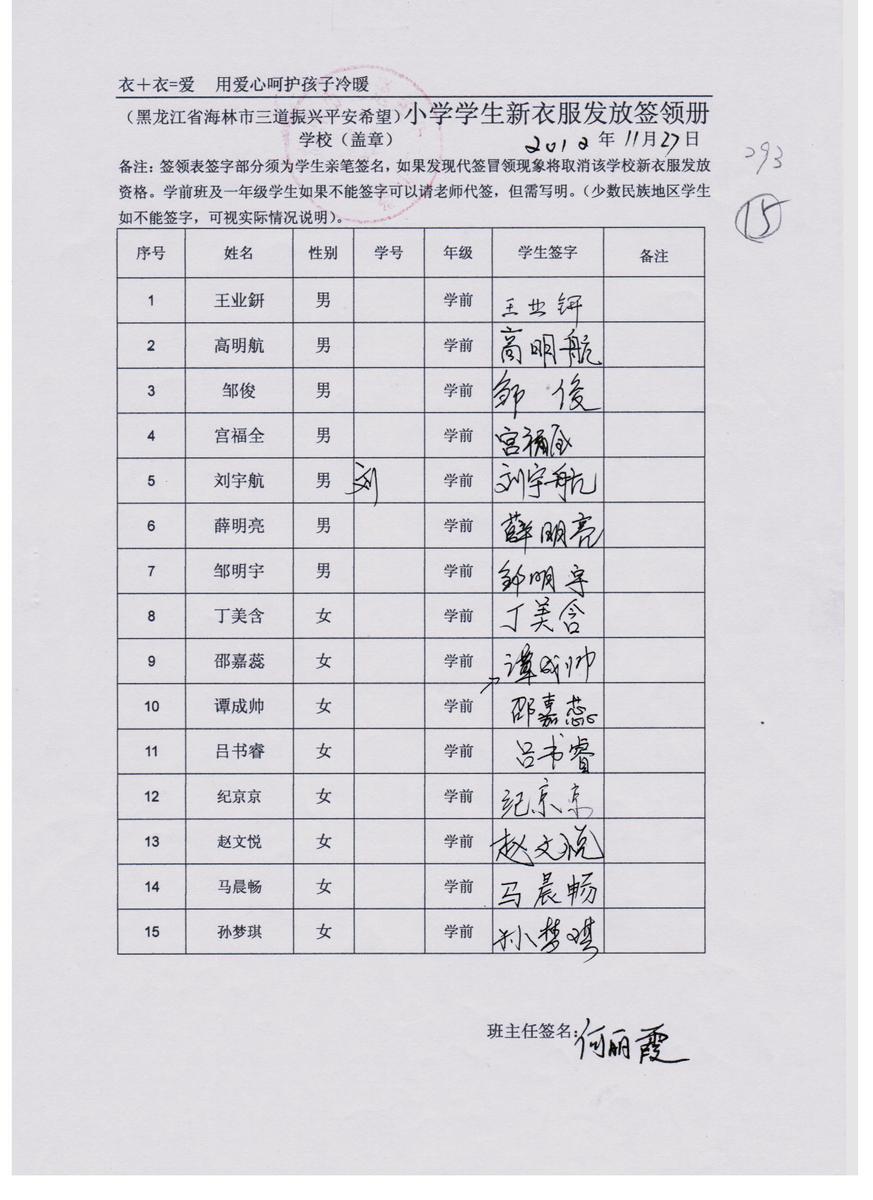 衣＋衣=爱 用爱心呵护孩子冷暖
（黑龙江省海林市三道振兴平安希望）小学学生新衣服发放签领册
学校（盖章） 2012 年 11月27日
293
备注：签领表签字部分须为学生亲笔签名，如果发现代签冒领现象将取消该学校新衣服发放
资格。学前班及一年级学生如果不能签字可以请老师代签，但需写明。（少数民族地区学生
如不能签字，可视实际情况说明）。
15
序号 姓名 性别 学号 年级 学生签字 备注
1 王业鈃 男 学前 王业钘
2 高明航 男 学前 高明航
3 邹俊 男 学前 邹俊
4 宫福全 男 学前 宫福全
5 刘宇航 男 刘 学前 刘宇航
6 薛明亮 男 学前 薛明亮
7 邹明宇 男 学前 邹明宇
8 丁美含 女 学前 丁美含
9 邵嘉蕊 女 学前 谭成帅
10 谭成帅 女 学前 邵嘉蕊
11 吕书睿 女 学前 吕书睿
12 纪京京 女 学前 纪京京
13 赵文悦 女 学前 赵文悦
14 马晨畅 女 学前 马晨畅
15 孙梦琪 女 学前 孙梦琪
班主任签名：何丽霞